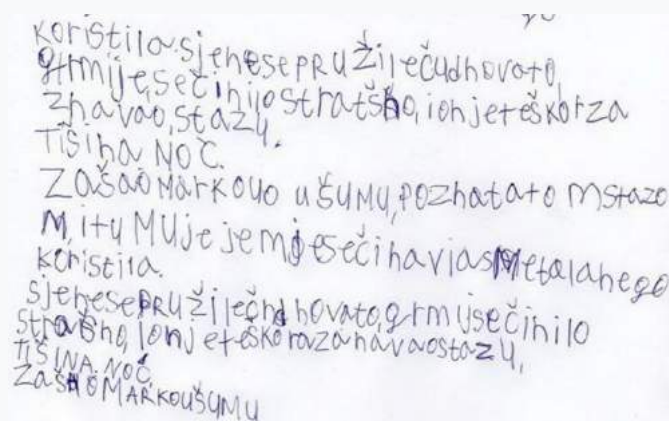 koristila.sjenesepružilečudnovato,
grmije,sečinilostratšno,ionjeteškorza
znavao,stazu.
TIŠINA NOĆ.
ZAŠAO MARKOUO UŠUMU,POZNATATO mstazo
m,itu MUjejemjesečinaviasMetalanego
koristila.
sjenesepružilečndnovato,grmijsečinilo
strašno,ionjeteškorazanavaostazu,
TIŠINA.NOĆ.
ZAŠAOMARKOUŠUMU